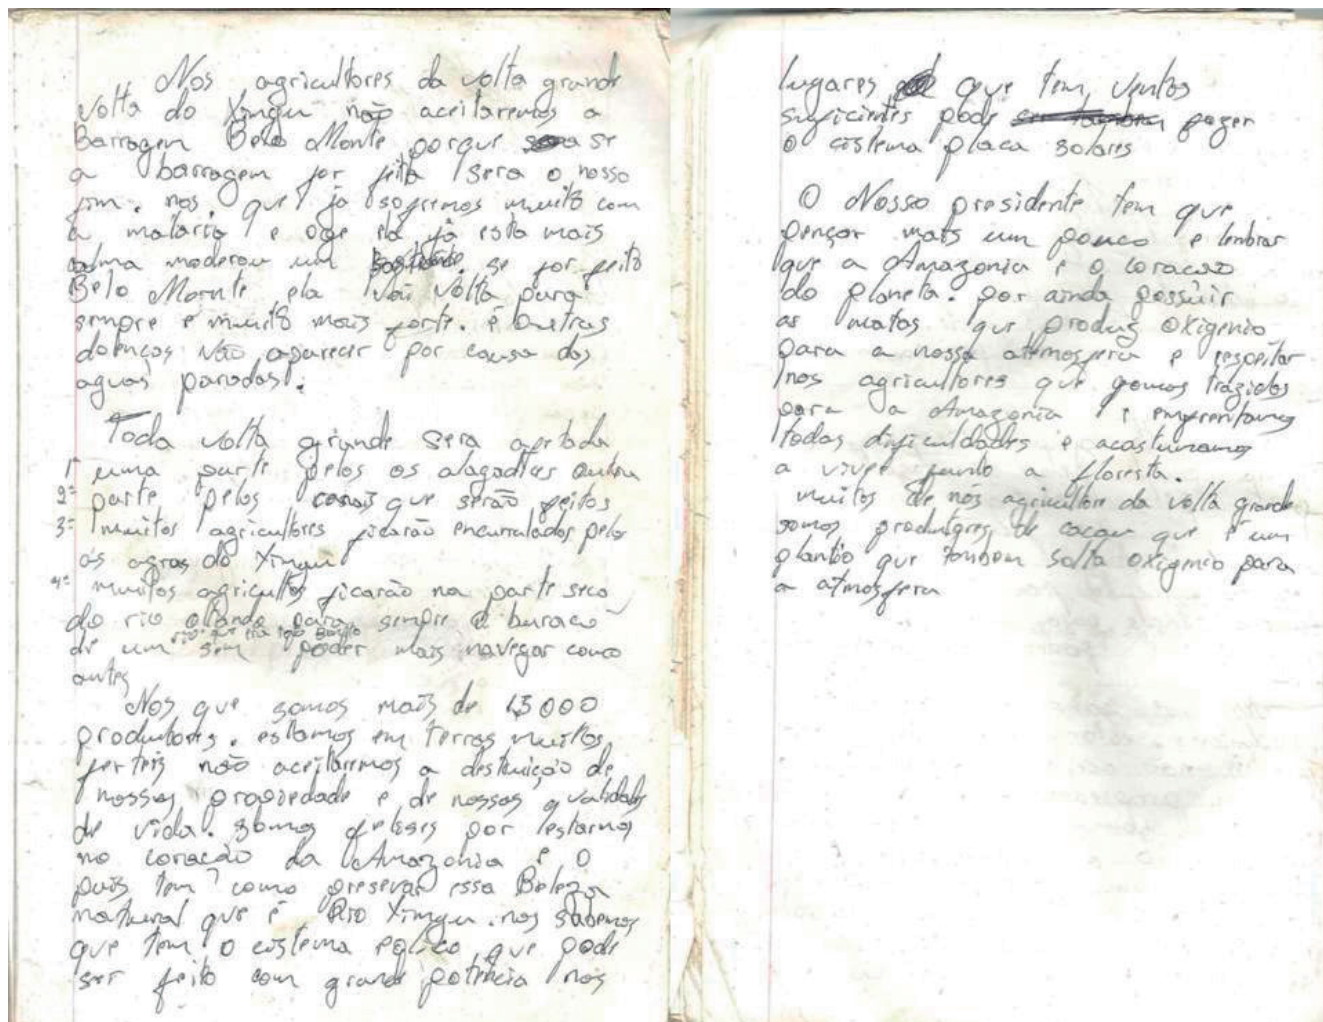 Nos agricultores da volta grande
volta do Xingu não aceitaremos a
Barragem Belo Monte porque se
a barragem for feita sera o nosso
fim. nos que já sofremos muito com
a malaria e oge ela já esta mais
calma moderou um bastante. se for feito
Belo Monte ela vai volta para
sempre e muito mais forte. é Outras
doenças vão aparecer por causa das
aguas paradas.
Toda volta grande sera afetada
1ª uma parte pelos os alagadtes outra
2ª parte pelos canais que serão feitos
3ª muitos agricultores ficarão encurralados pelo
ás agras do Xingu
4ª muitos agricultos ficarão na parte seca
do rio olhando para sempre o buraco
rio que era
de um sem poder mais navegar como
antes
Nos que somos mais de 15000
produtores. estamos em terras muitos
ferteis não aceitaremos a destuição de
nossas propiedade e de nossas qualidades
de vida. somos felises por estarmos
no coração da Amazonia e o
pais tem como preservar essa Beleza
natural que é Rio Xingu. nos sabemos
que tem o cistema eolico que pode
ser feito com grande potência nos
lugares que tem ventos
suficientes pode fazer
o cistema placa solares
O Nosso presidente tem que
pençar mais um pouco e lembrar
que a Amazonia é o coracao
do planeta. por ainda possuir
as matas que produz oxigenio
para a nossa atemosfera e respeitar
nos agricultores que fomos trazidos
para a Amazonia e emfrentamos
todas dificuldades e acastumamos
a vive junto a floresta.
muitos de nós agricultore da volta grande
somos produtores de cacau que é um
plantio que tambem solta oxigenio para
a atmosfera